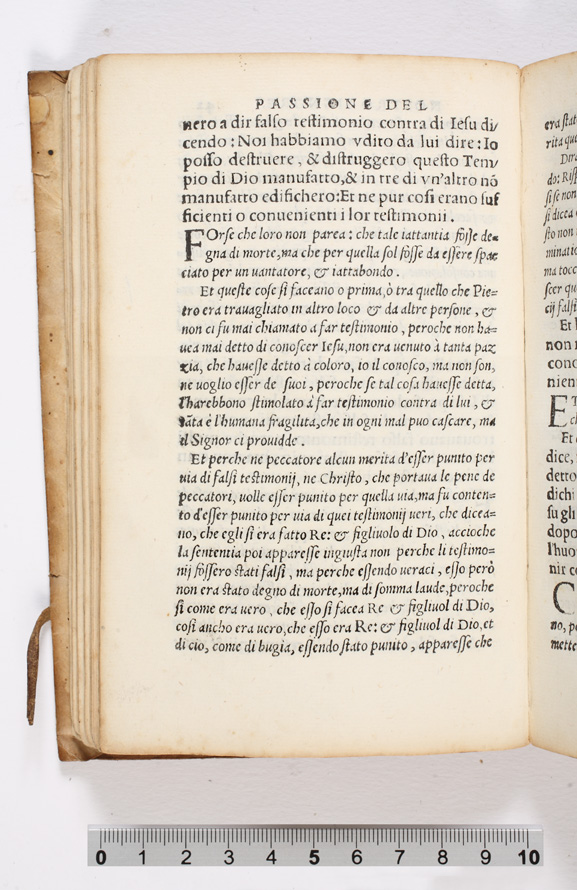 PASSIONE DEL
nero a dir falso testimonio contra di Iesu di/
cendo : Noi habbiamo vdito da lui dire : Io
posso destruere , & distruggero questo Tem/
pio di Dio manufatto,& in tre di vn'altro nõ
manufatto edifichero:Et ne pur cosi erano suf
ficienti o conuenienti i lor testimonii .
FOrse che loro non parea : che tale iattantia fòsse de=
gna di morte,ma che per quella sol fòsse da essere spac
ciato per un uantatore, & iattabondo .
Et queste cose si faceano o prima,ò tra quello che Pie=
tro era trauagliato in altro loco & da altre persone , &
non ci fu mai chiamato a far testimonio , peroche non ha=
uea mai detto di conoscer Iesu,non era uenuto à tanta paz
zia, che hauesse detto à coloro, io il conosco, ma non son,
ne uoglio esser de suoi , peroche se tal cosa hauesse detta,
l'harebbono stimolato à far testimonio contra di lui , &
tãta è l'humana fragilita,che in ogni mal puo cascare, ma
il Signor ci prouidde .
Et perche ne peccatore alcun merita d'esser punito per
uia di falsi testimonij, ne Christo , che portaua le pene de
peccatori, uolle esser punito per quella uia,ma fu conten=
to d'esser punito per uia di quei testimonij ueri, che dicea=
no, che egli si era fatto Re: & figliuolo di Dio , accioche
la sententia poi apparesse ingiusta non perche li testimo=
nij fòssero stati falsi , ma perche essendo ueraci , esso però
non era stato degno di morte,ma di somma laude,peroche
si come era uero , che esso si facea Re & figliuol di Dio,
cosi ancho era uero,che esso era Re: & figliuol di Dio,et
di cio, come di bugia, essendo stato punito , apparesse che
0 1 2 3 4 5 6 7 8 9 10